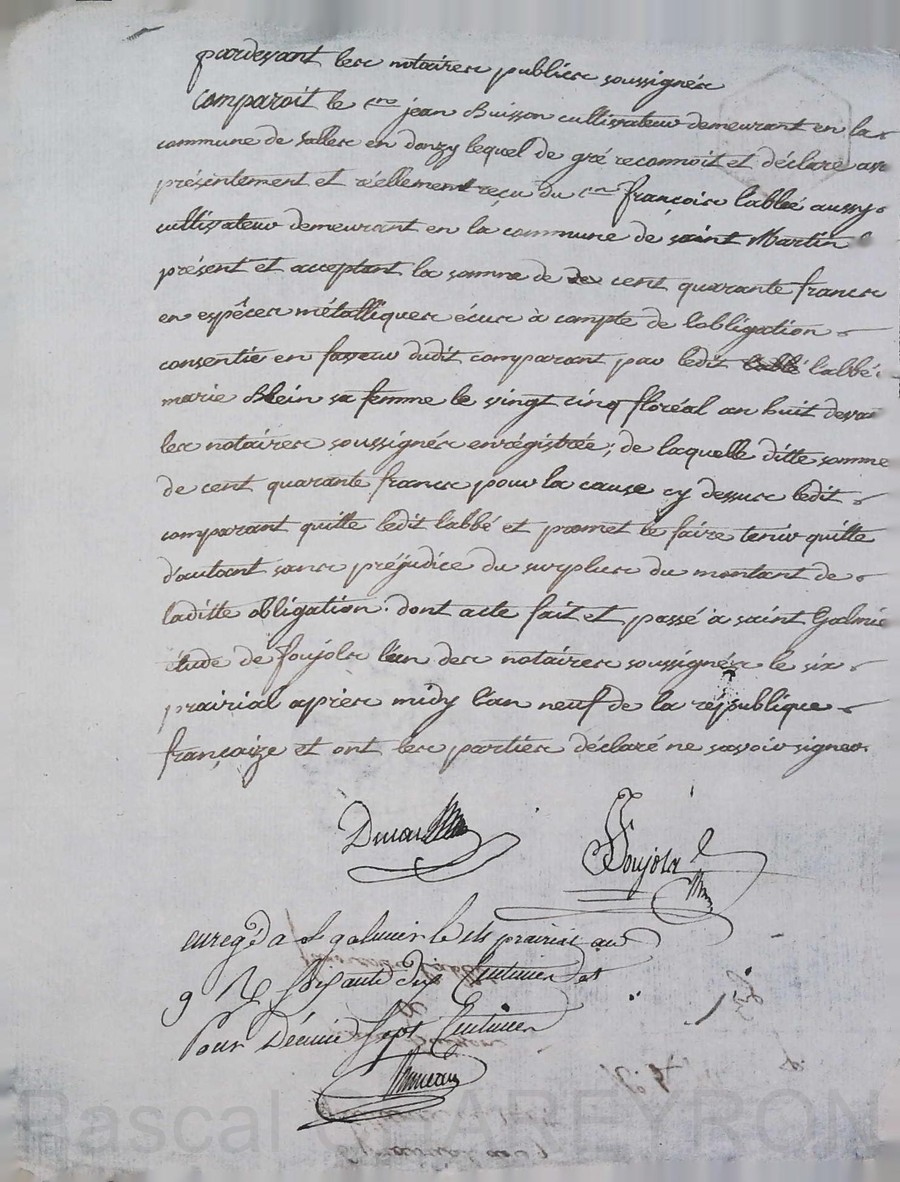 pardevant les notaires publics soussignés
Comparoit le c.en jean Buisson cultivateur demeurant en la
commune de salles en donzy lequel de gré reconnoit et déclare avoir
présentement et réellement reçu du c.en françois labbé aussy
cultivateur demeurant en la commune de saint Martin
présent et acceptant la somme de de cent quarante francs
en espêces métalliques écus à compte de l'obligation
consentie en faveur dudit comparant par ledit labbé labbé
marie Blein sa femme le vingt cinq floréal an huit devant
les notaires soussignés enrégistrée; de laquelle ditte somme
de cent quarante francs pour la cause cy dessus ledit
comparant quitte ledit labbé et promet le faire tenir quitte
d'autant sans préjudice du surplus du montant de
laditte obligation. dont acte fait et passé à saint Galmier
étude de foujols l'un des notaires soussignés le six
prairial après midy l'an neuf de la république
françaize et ont les parties déclaré ne savoir signer.
Foujols
enreg.é a s.t galmier le prairial an
9 Rç soixante dix Centimes et
Pour Décime Sept Centimes
Pascal CHAREYRON